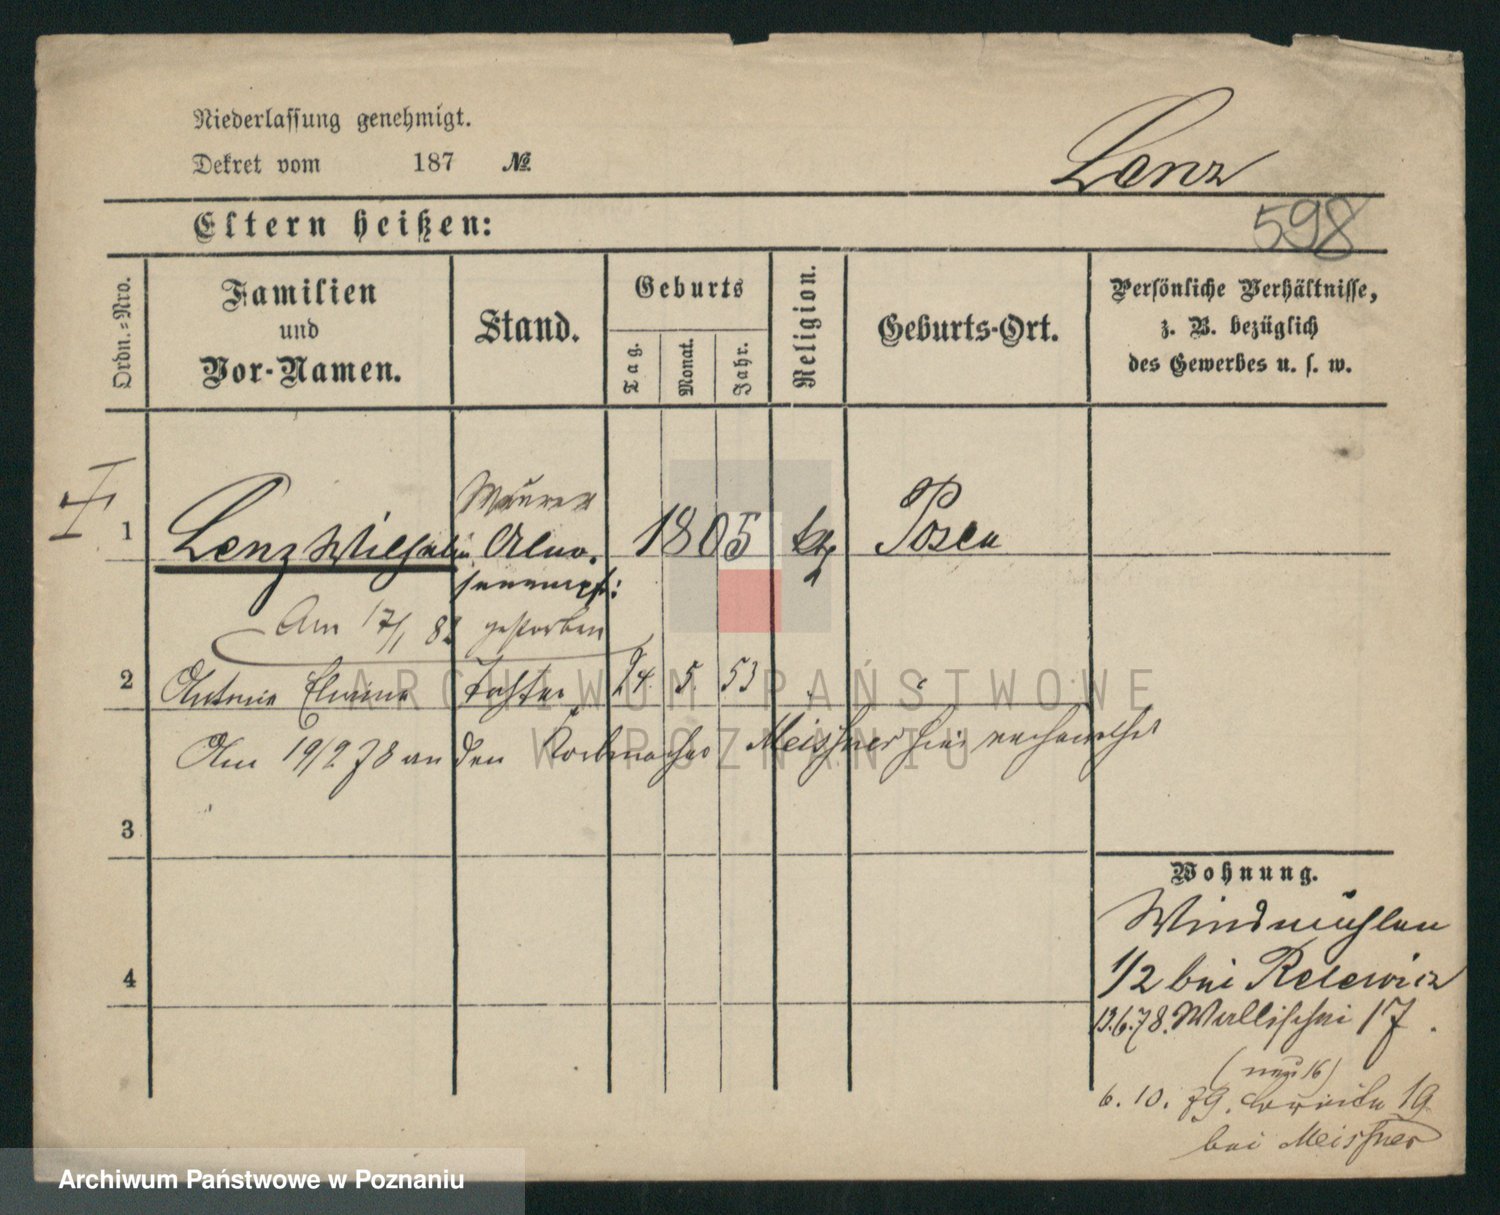 Niederlassung genehmigt.
Dekret vom 187 №
Lenz
Eltern heißen:
598
Ordn.-Nro.
Familien
und
Vor-Namen.
Stand.
Geburts
Tag.
Monat.
Jahr.
Religion.
Geburts-Ort.
Persönliche Verhältnisse,
z. B. bezüglich
des Gewerbes u. s. w.
Maurer
1 Lenz Wilhelm Almo-
senempf: 1805 Posen
Am 17/1 gestorben
2 Antonie Tochter 24. 5. 53
Am 19/2 78 an den Korbmacher Meissner hier verheirathet
3
4
Wohnung.
Windmühlen
1/2 bei
13.6.78. Wallischei 17.
(neu 16)
6. 10. 79. 19
bei Meissner
ARCHIWUM PAŃSTWOWE
W POZNANIU
Archiwum Państwowe w Poznaniu